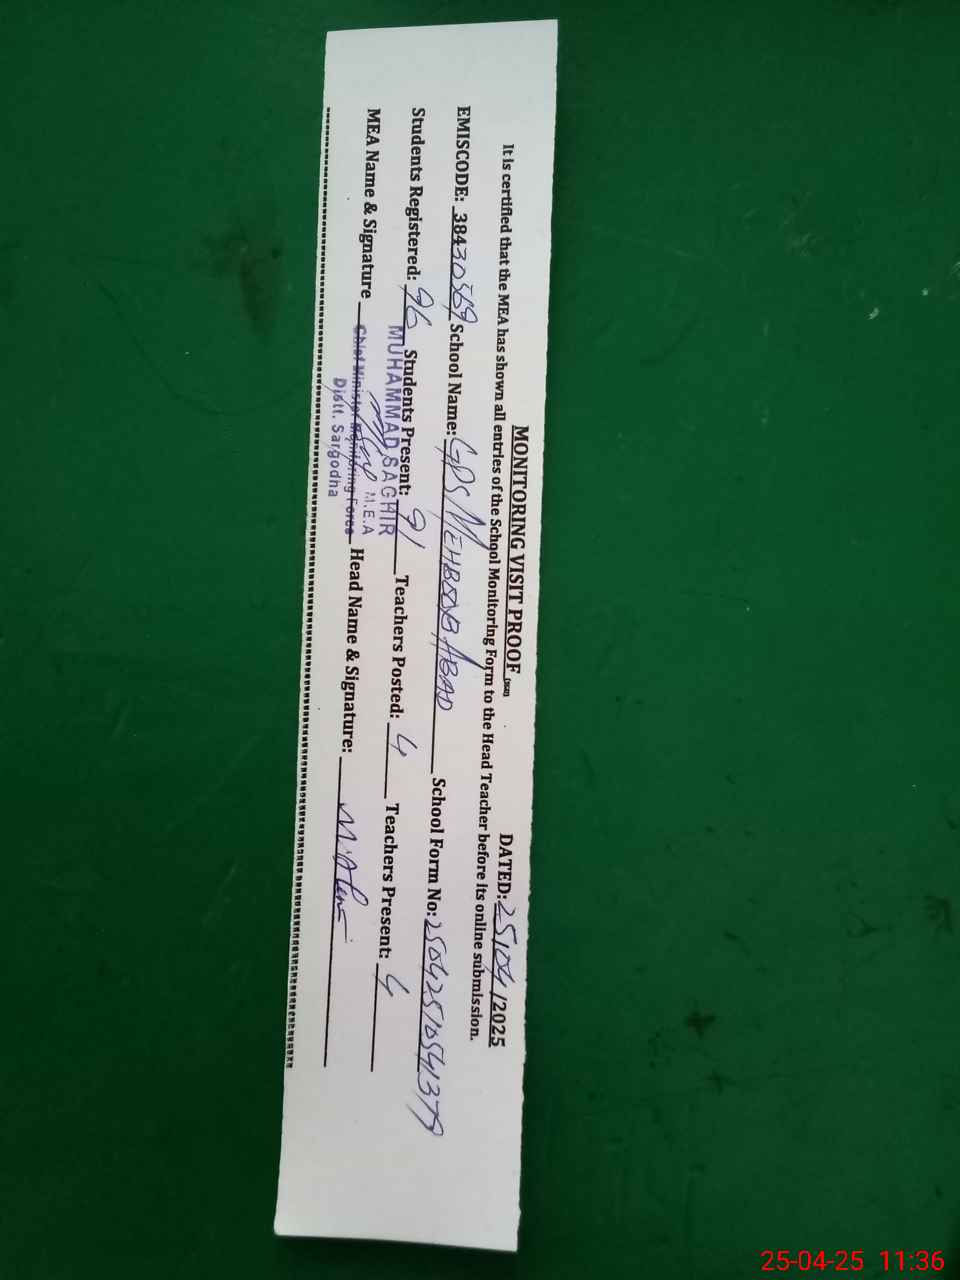 MONITORING VISIT PROOF DATED: 25/04/2025
It is certified that the MEA has shown all entries of the School Monitoring Form to the Head Teacher before its online submission.
EMISCODE: 38430569 School Name: GPS MEHBOOB ABAD School Form No: 25042510541379
Students Registered: 96 Students Present: 91 Teachers Posted: 4 Teachers Present: 4
MUHAMMAD SAGHIR
M.E.A
MEA Name & Signature Chief Minister Monitoring Force Head Name & Signature:
Distt. Sargodha
25-04-25 11:36